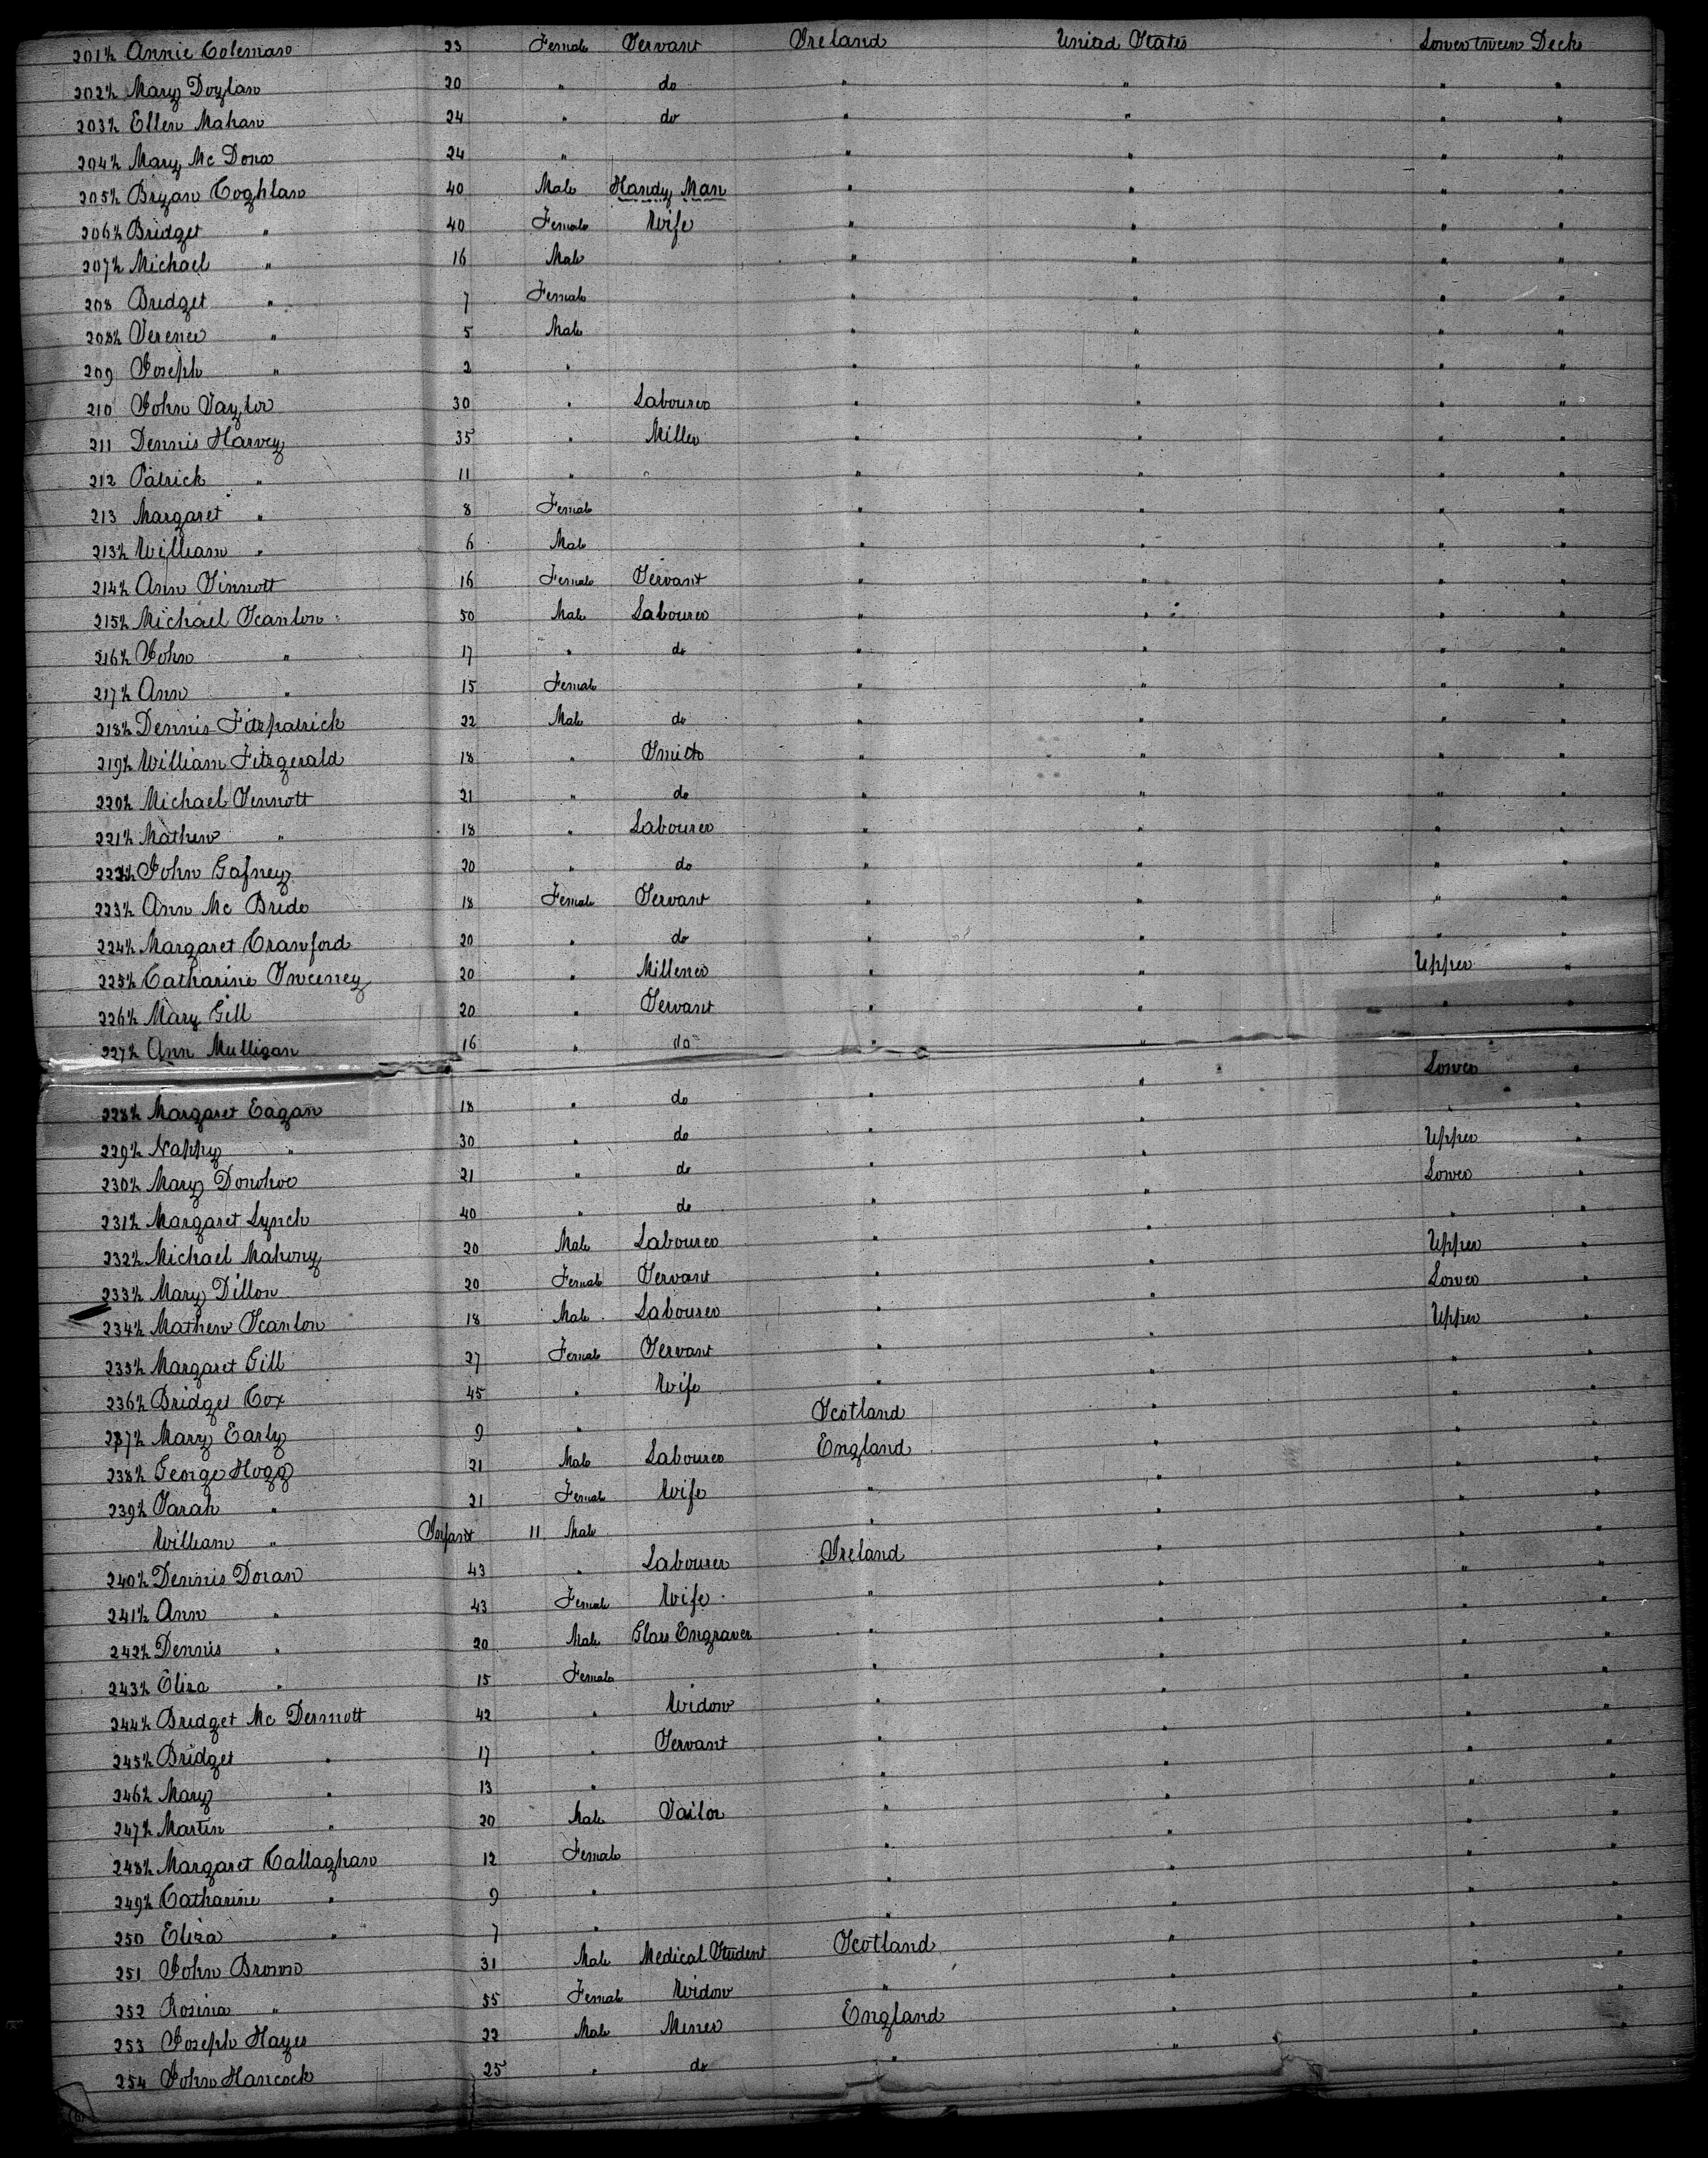 201½ Annie Coleman 23 Female Servant Ireland United States Lower tween Decks
202½ Mary Doylan 20 " do " " " "
203½ Ellen Mahan 24 " do " " " "
204½ Mary Mc Dona 24 " " " " "
205½ Bryan Coghlan 40 Male Handy Man " " " "
206½ Bridget " 40 Female Wife " " " "
207½ Michael " 16 Male " " " "
208 Bridget " 7 Female " " " "
208½ Terence " 5 Male " " " "
209 Joseph " 2 " " " " "
210 John Taylor 30 " Labourer " " " "
211 Dennis Harvey 35 " Miller " " " "
212 Patrick " 11 " " " " " "
213 Margaret " 8 Female " " " "
213½ William " 6 Male " " " "
214½ Ann Sinnott 16 Female Servant " " " "
215½ Michael Scanlon 50 Male Labourer " " " "
216½ John " 17 " do " " " "
217½ Ann " 15 Female " " " "
218½ Dennis Fitzpatrick 22 Male do " " " "
219½ William Fitzgerald 18 " Smith " " " "
220½ Michael Sennott 21 " do " " " "
221½ Mathew " 18 " Labourer " " " "
222½ John Gafney 20 " do " " " "
223½ Ann Mc Bride 18 Female Servant " " " "
224½ Margaret Crawford 20 " do " " " "
225½ Catharine Sweeney 20 " Millener " " Upper "
226½ Mary Gill 20 " Servant " " " "
227½ Ann Mulligan 16 " do " " Lower "
228½ Margaret Eagan 18 " do " " " "
229½ Nappy " 30 " do " " Upper "
230½ Mary Donohoe 21 " do " " Lower "
231½ Margaret Lynch 40 " do " " " "
232½ Michael Mahony 20 Male Labourer " " Upper "
233½ Mary Dillon 20 Female Servant " " Lower "
234½ Mathew Scanlon 18 Male Labourer " " Upper "
235½ Margaret Gill 27 Female Servant " " " "
236½ Bridget Cox 45 " Wife " " " "
237½ Mary Early 9 " Scotland " " "
238½ George Hogg 21 Male Labourer England " " "
239½ Sarah " 21 Female Wife " " " "
William " Infant 11 Male " " " "
240½ Dennis Doran 43 " Labourer Ireland " " "
241½ Ann " 43 Female Wife " " " "
242½ Dennis " 20 Male Glass Engraver " " " "
243½ Eliza " 15 Female " " " "
244½ Bridget Mc Dermott 42 " Widow " " " "
245½ Bridget " 17 " Servant " " " "
246½ Mary " 13 " " " " "
247½ Martin " 20 Male Tailor " " " "
248½ Margaret Callaghan 12 Female " " " "
249½ Catharine " 9 " " " " "
250 Eliza " 7 " " " " "
251 John Brown 31 Male Medical Student Scotland " " "
252 Rosina " 55 Female Widow " " " "
253 Joseph Hayes 22 Male Miner England " " "
254 John Hancock 25 " do " "